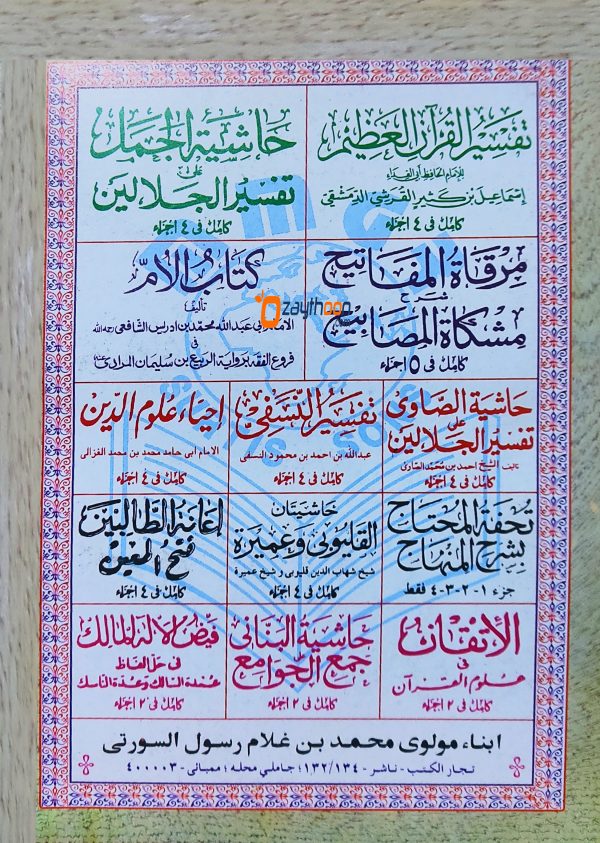 تفسير القرآن العظيم
للإمام الحافظ أبي الفداء
إسماعيل بن كثير القرشي الدمشقي
كامل في ٤ اجزاء
حاشية الجمل
على
تفسير الجلالين
كامل في ٤ اجزاء
مرقاة المفاتيح
شرح
مشكاة المصابيح
كامل في ٥ اجزاء
كتاب الأم
تأليف
الامام أبي عبد الله محمد بن ادريس الشافعي رحمه الله
في
فروع الفقه برواية الربيع بن سليمان المرادي
zaythoon
حاشية الصاوى
على
تفسير الجلالين
تاليف الشيخ احمد بن محمد الصاوى
كامل في ٤ اجزاء
تفسير النسفي
عبدالله بن احمد بن محمود النسفى
كامل في ٤ اجزاء
إحياء علوم الدين
الامام أبى حامد محمد بن محمد الغزالى
كامل في ٤ اجزاء
تحفة المحتاج
بشرح المنهاج
جزء ١-٢-٣-٤ فقط
حاشيتان
القليوبى وعميرة
شيخ شهاب الدين قليوبى و شيخ عميرة
كامل في ٤ اجزاء
إعانة الطالبين
فتح المعين
كامل في ٤ اجزاء
الإتقان
في
علوم القرآن
كامل في ٢ اجزاء
حاشية البنانى
جمع الجوامع
كامل في ٢ اجزاء
فيض الإله المالك
في حل الفاظ
عمدة السالك وعدة الناسك
كامل في ٢ اجزاء
ابناء مولوى محمد بن غلام رسول السورتى
تجار الكتب - ناشر - ١٣٢/١٣٤؛ جاملي محله؛ ممبائى - ٤٠٠٠٠٣